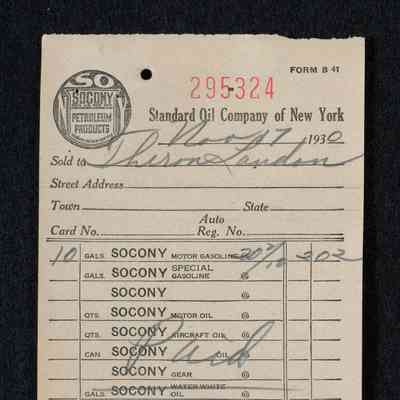 FORM B 41
SO
SOCONY
PETROLEUM
PRODUCTS
295324
Standard Oil Company of New York
Nov 17 1930
Sold to Theron Landon
Street Address
Town State
Auto
Card No. Reg. No.
10 GALS. SOCONY MOTOR GASOLINE 20 2/10 2 02
GALS. SOCONY SPECIAL GASOLINE @
SOCONY @
QTS. SOCONY MOTOR OIL @
QTS. SOCONY AIRCRAFT OIL @
CAN SOCONY OIL @
Paid
SOCONY GEAR @
GALS. SOCONY WATER WHITE OIL @